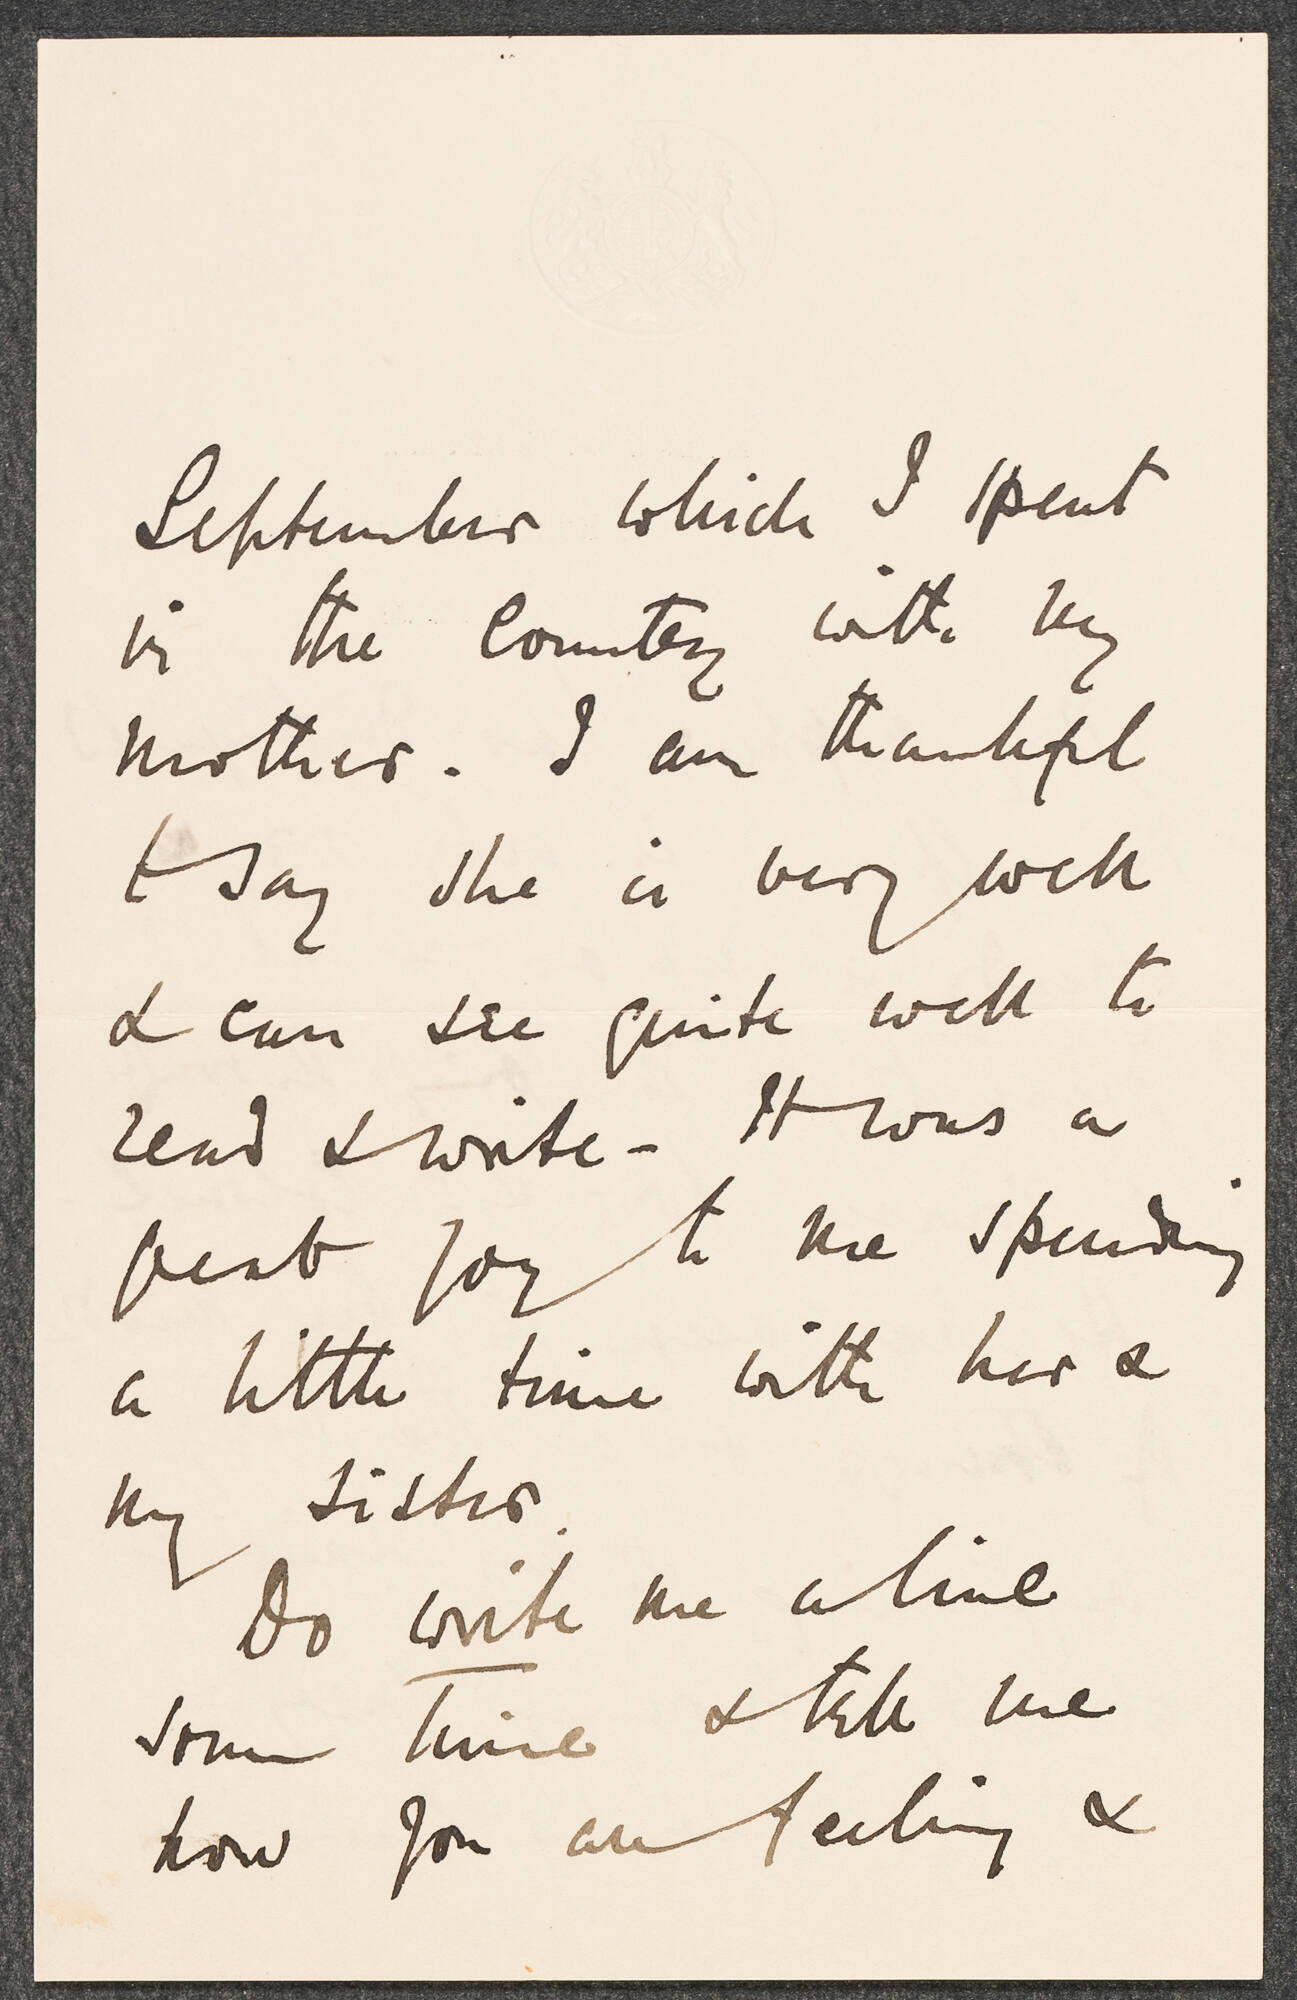 September which I spent
in the Country with my
mother. I am thankful
to say she is very well
& can see quite well to
read & write - It was a
great joy to me spending
a little time with her &
my sister.
Do write me a line
some time & tell me
how you are feeling &